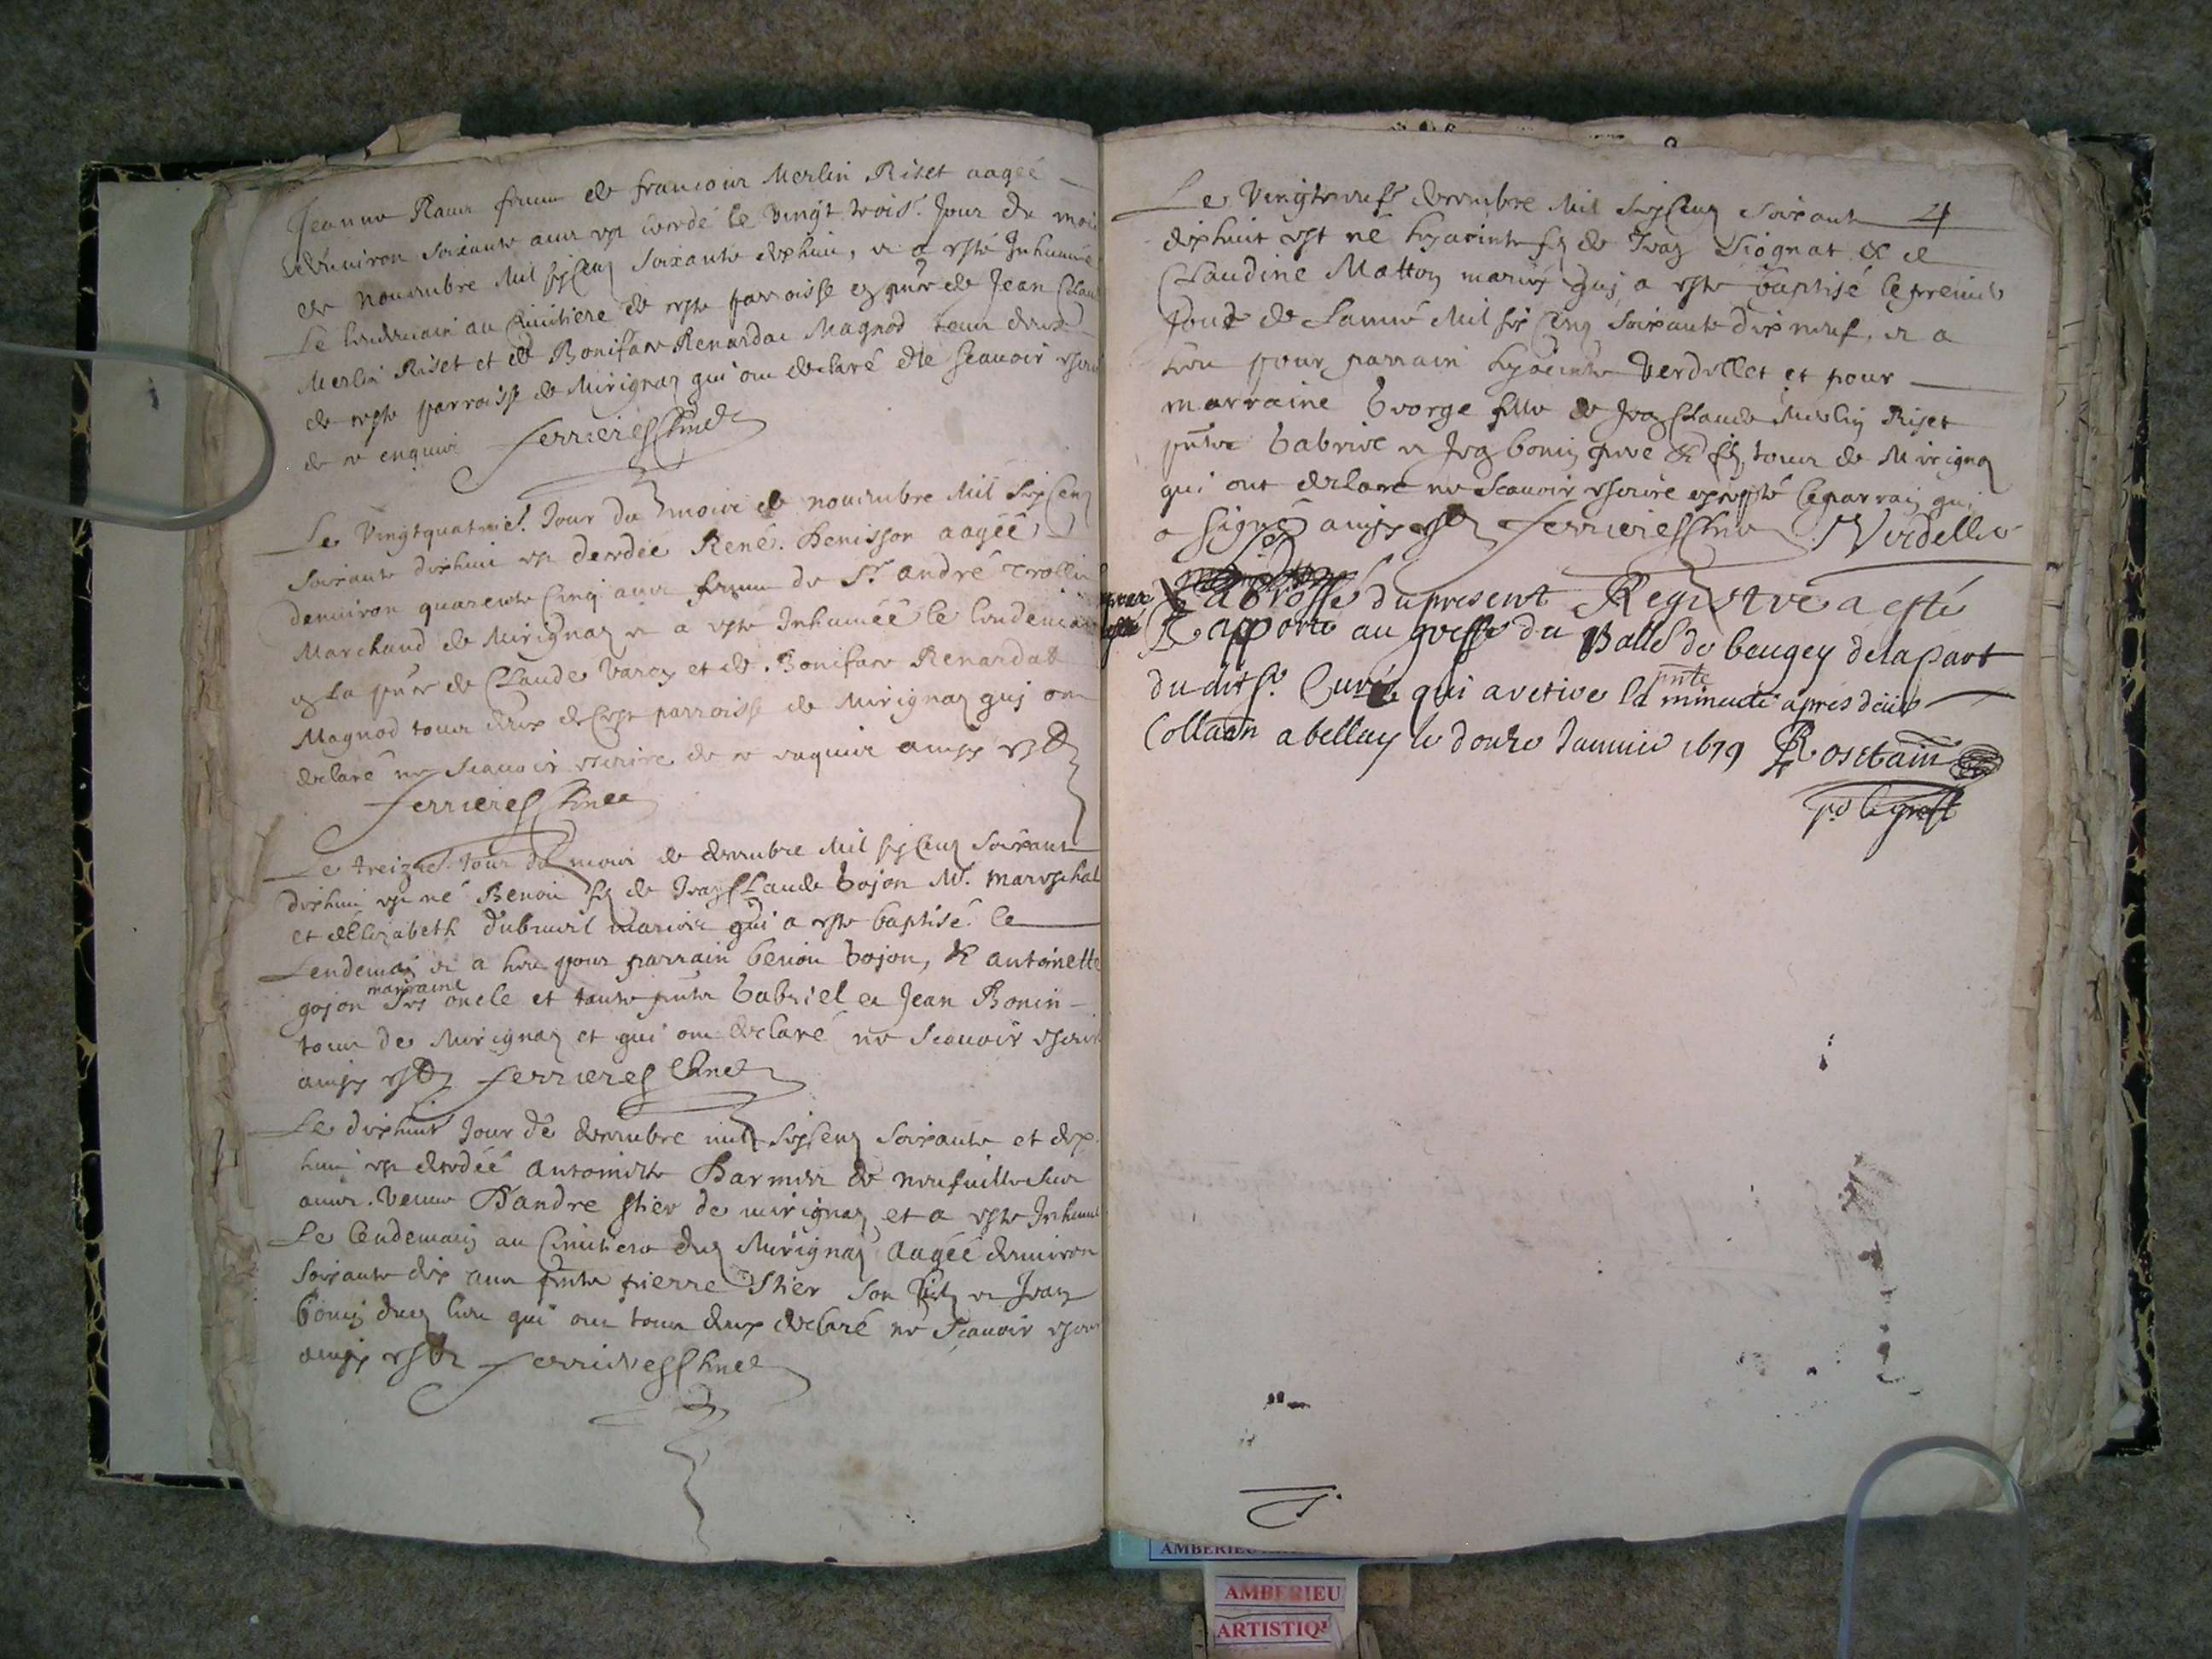 Jeanne femme de francois Merlin Riset aagée
denviron soixante ans est decedé le vingt trois.e Jour du mois
de novembre Mil six Cens soixante dixhuit, et a este Inhumée
Le lendemain au Cimitiere de ceste parroisse en pñce de Jean Claude
Merlin Riset et de Boniface Renardat Magnod tous deux
de ceste parroisse de Mirignaz qui ont declaré ne scauoir escrire
de ce enquis ferrieres
Le Vingtquatrie.e Jour du mois de nouembre Mil six Cens
soixante dixhuit est decedée René. Denisson aagéé
denuiron quarente Cinq ans femme de Sr. andré trollie
Marchand de Mirignaz et a este Inhuméé le lendemain
en la pñce de Claude Varey et de Boniface Renardat
Magnod tous deux de Ceste parroisse de Mirignaz qui ont
declaré ne scauoir escrire de ce enquis ainsy est
ferrieres
Le treizie.e Jour du mois de decembre Mil six Cens soixante
dixhuit est né Benoit fils de Jean Claude Gojon Me. mareschal
et d'Elizabeth dubrueil mariés qui a este baptisé le
Lendemain et a heu pour parrain benoit Gojon, & antoinette
gojon marraine ses oncle et tante pñts Gabriel et Jean Bonin
tous de Mirignaz et qui ont declaré ne scauoir escrire
ainsy est ferrieres
Le dixhuit Jour de decembre mil six Cens soixante et dix
huit est decedéé antoinette Darmier de neufuille sur
ains. veuue Dandre stier de mirignaz et a este Inhumé
Le lendemain au Cimitiere dud Mirignaz aagéé denuiron
soixante dix ans pñts pierre Stier son fils et Jean
bonin dud lieu qui ont tous deux declaré ne scauoir escrire
ainsy est ferrieres
Le Vingtneufe decembre Mil six Cens soixante 4
dixhuit est né hyacinte fils de Jean Siognat & de
Claudine Matton mariés qui a este baptisé le premie
Jour de Lanné Mil six Cens soixante dix neuf, et a
heu pour parrain hyacinte Verdellet et pour
marraine George fille de Jean Claude Merlin Riset
pñts Gabriel et Jean bonin pere & fils, tous de Mirignaz
qui ont declaré ne scauoir escrire excepté le parrain qui
a signé ainsy est ferrieres Verdellet
La grosse du present Registre a esté
Rapporte au greffe du Balle de beugey de la part
dudit Sr. Curé qui a retire la pnte minute apres deue
Collaon a belley le douze Januier 1679 Rostain
pr. le greff
AMBERIEU
AMBERIEU
ARTISTIQ